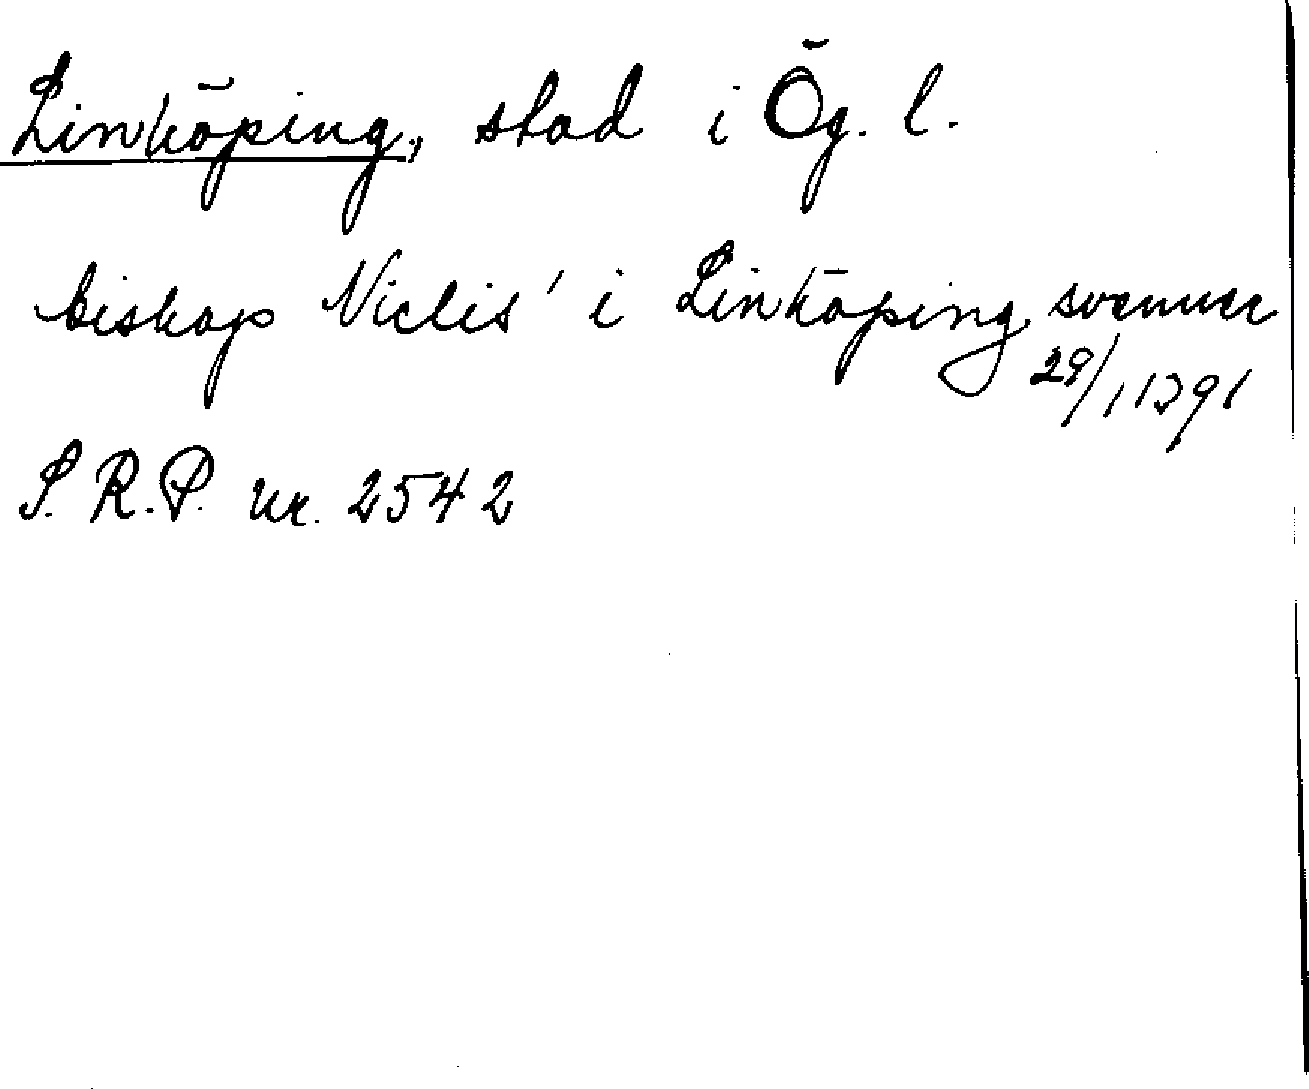 Linköping, stad i Ög. l.
biskop Niclis' i Linköping svenner
29/1 1391
S. R. P. nr. 2542